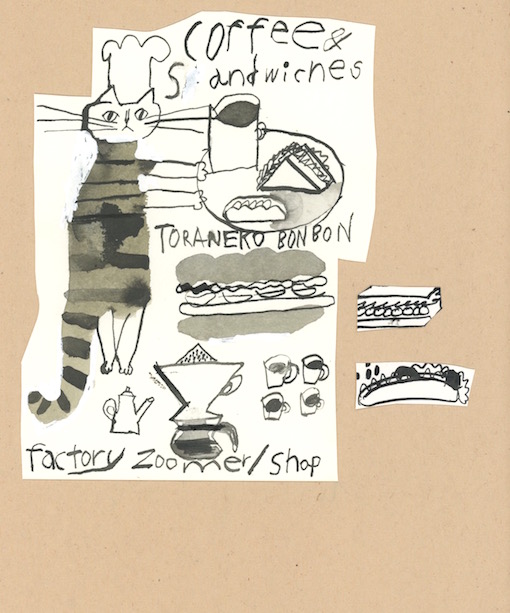 coffee &
Sandwiches
TORANEKO BONBON
factory zoomer/shop